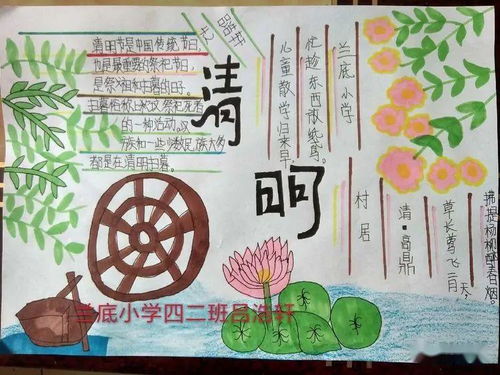 清明节是中国传统节日,
也是最重要的祭祀节日,
是祭祖和扫墓的日子。
扫墓俗称上坟,祭祀死者
的一种活动。汉
族和一些少数民族大多
都是在清明扫墓。
清明
村居
清·高鼎
草长莺飞二月天
拂提杨柳醉春烟。
儿童散学归来早,
兰底小学
兰底小学四二班吕浩轩